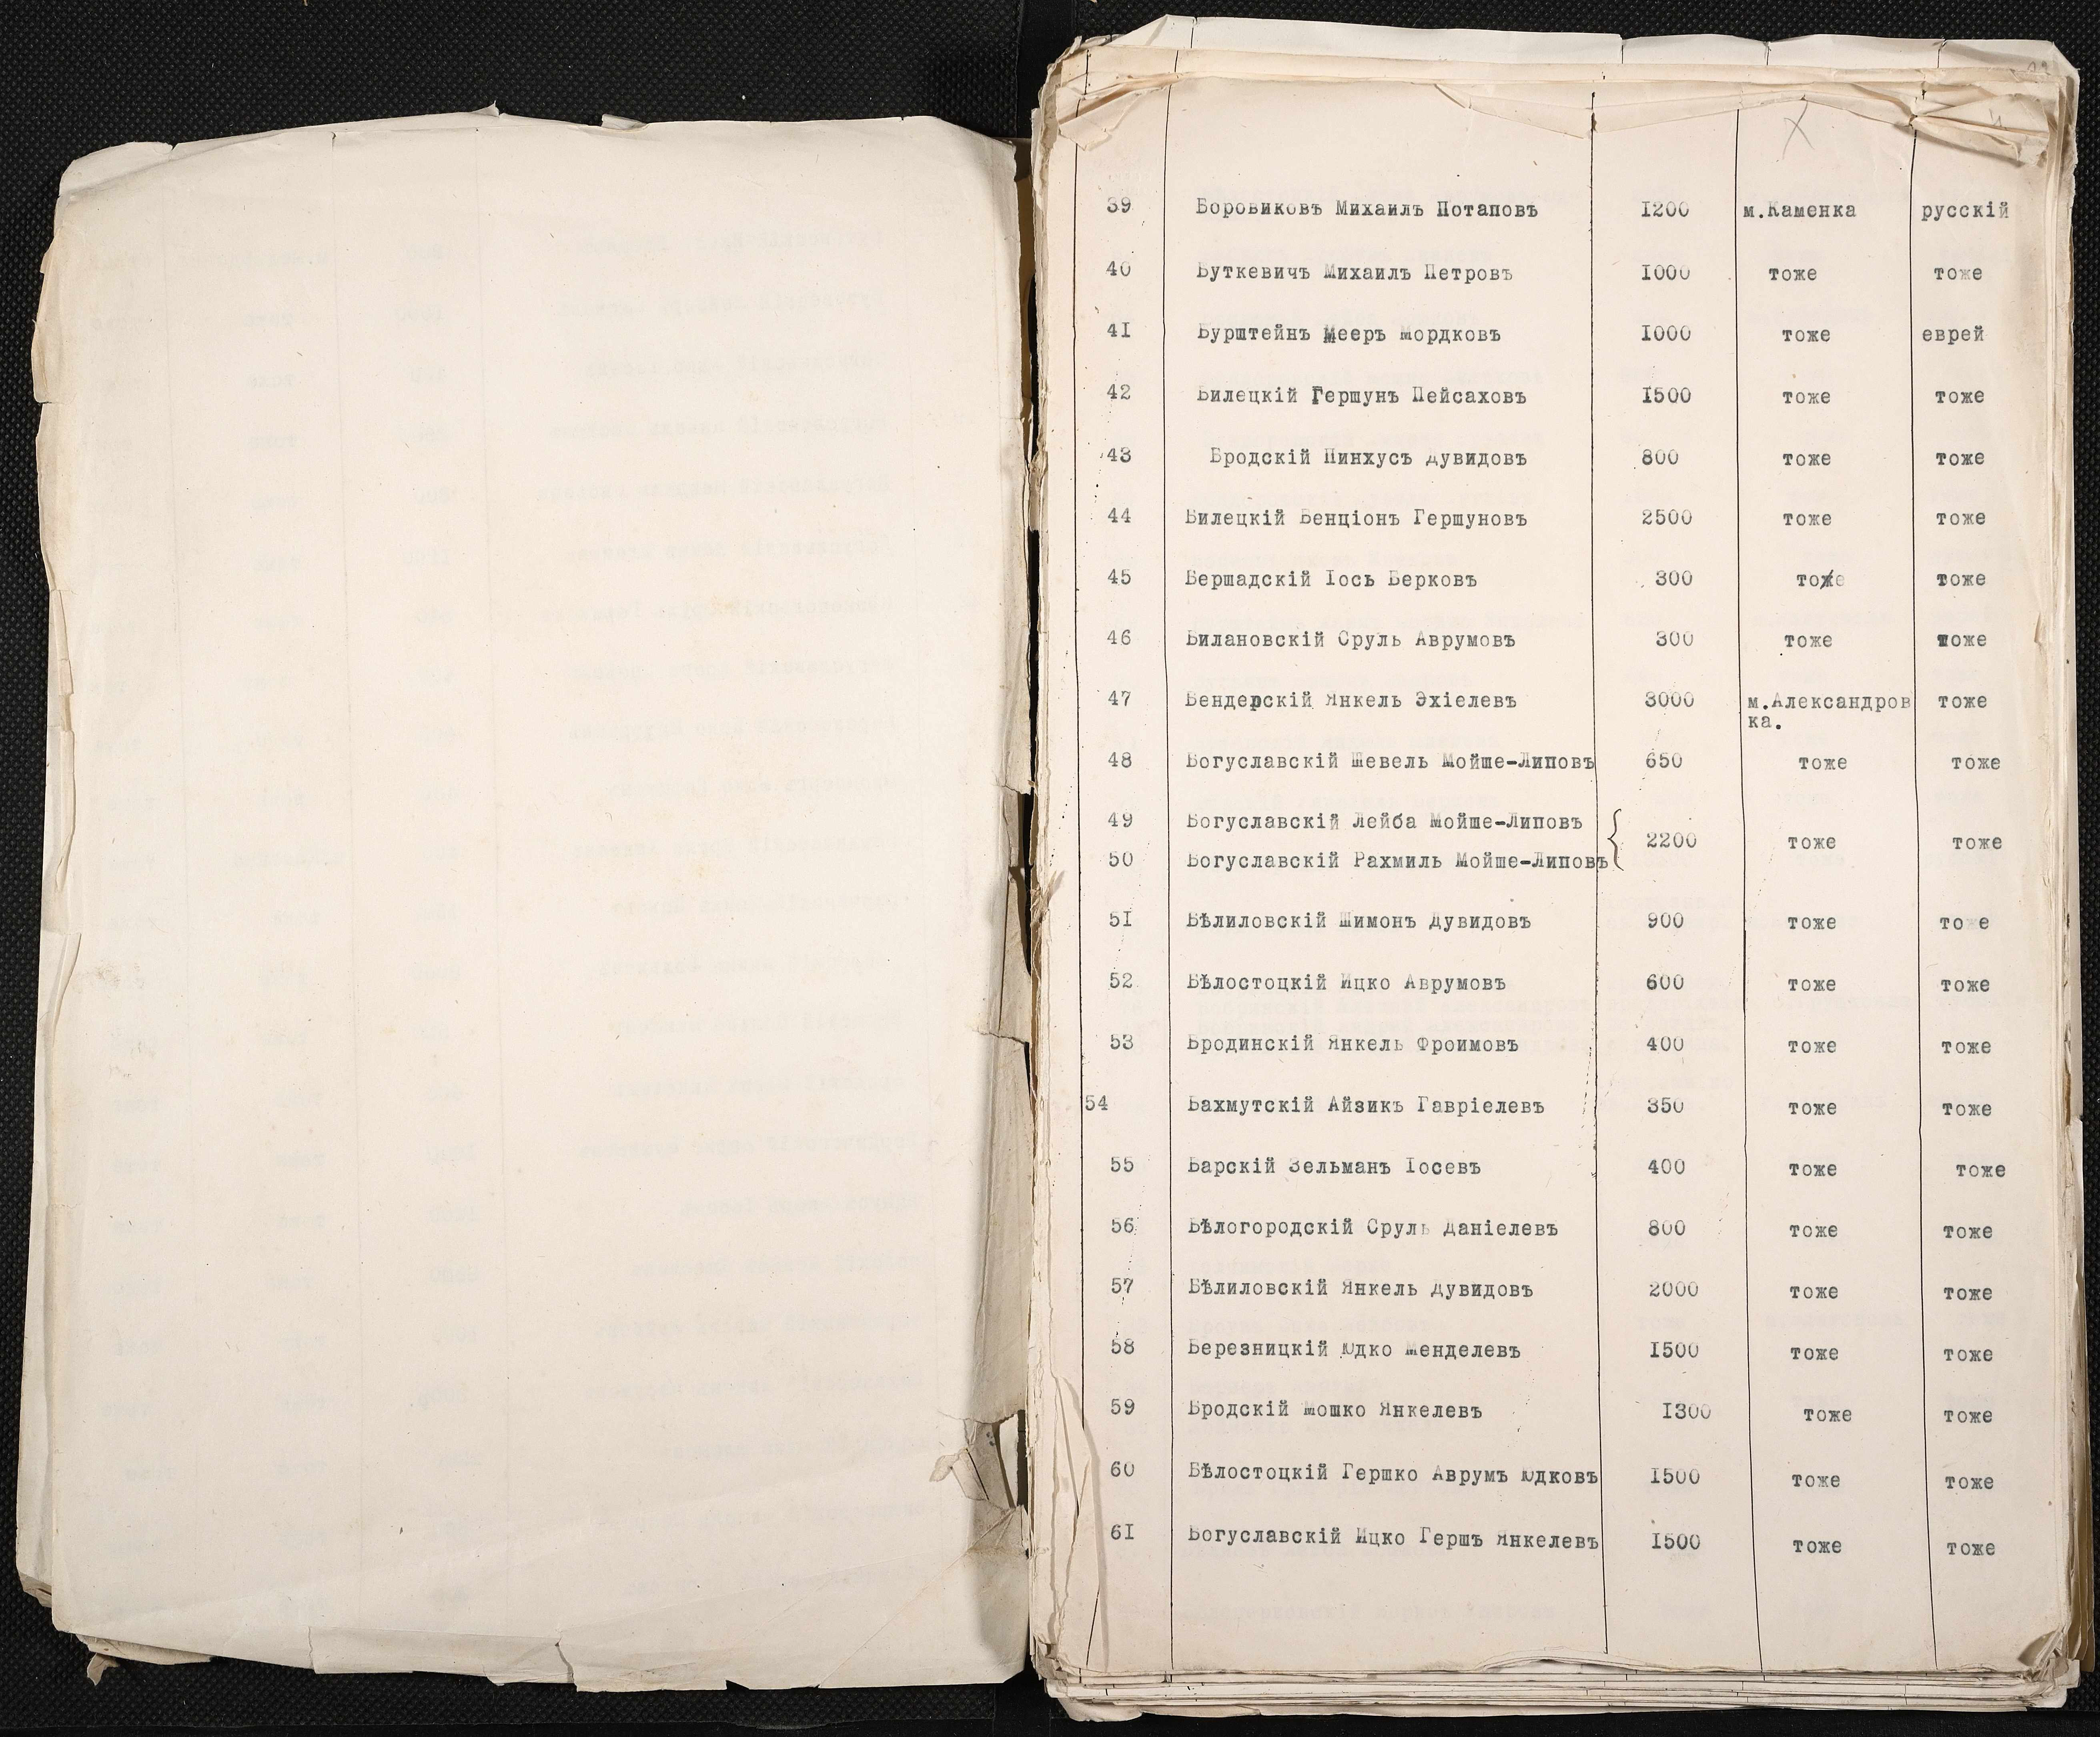 39 Боровиковъ Михаилъ Потаповъ 1200 м.Каменка русскій
40 Буткевичъ Михаилъ Петровъ 1000 тоже тоже
41 Бурштейнъ Мееръ Мордковъ 1000 тоже еврей
42 Билецкій Гершунъ Пейсаховъ 1500 тоже тоже
43 Бродскій Пинхусъ Дувидовъ 800 тоже тоже
44 Билецкій Бенціонъ Гершуновъ 2500 тоже тоже
45 Бершадскій Іось Берковъ 300 тоже тоже
46 Билановскій Сруль Аврумовъ 300 тоже тоже
47 Бендерскій Янкель Эхіелевъ 3000 м.Александров тоже
ка.
48 Богуславскій Шевель Мойше-Липовъ 650 тоже тоже
49 Богуславскій Лейба Мойше-Липовъ
2200 тоже тоже
50 Богуславскій Рахмиль Мойше-Липовъ
51 Бѣлиловскій Шимонъ Дувидовъ 900 тоже то е
52 Бѣлостоцкій Ицко Аврумовъ 600 тоже тоже
53 Бродинскій Янкель Фроимовъ 400 тоже тоже
54 Бахмутскій Айзикъ Гавріелевъ 350 тоже тоже
55 Барскій Зельманъ Іосевъ 400 тоже тоже
56 Бѣлогородскій Сруль Даніелевъ 800 тоже тоже
57 Бѣлиловскій Янкель Дувидовъ 2000 тоже тоже
58 Березницкій Юдко Менделевъ 1500 тоже тоже
59 Бродскій Мошко Янкелевъ 1300 тоже тоже
60 Бѣлостоцкій Гершко Аврумъ Юдковъ 1500 тоже тоже
61 Богуславскій Ицко Гершъ Янкелевъ 1500 тоже тоже